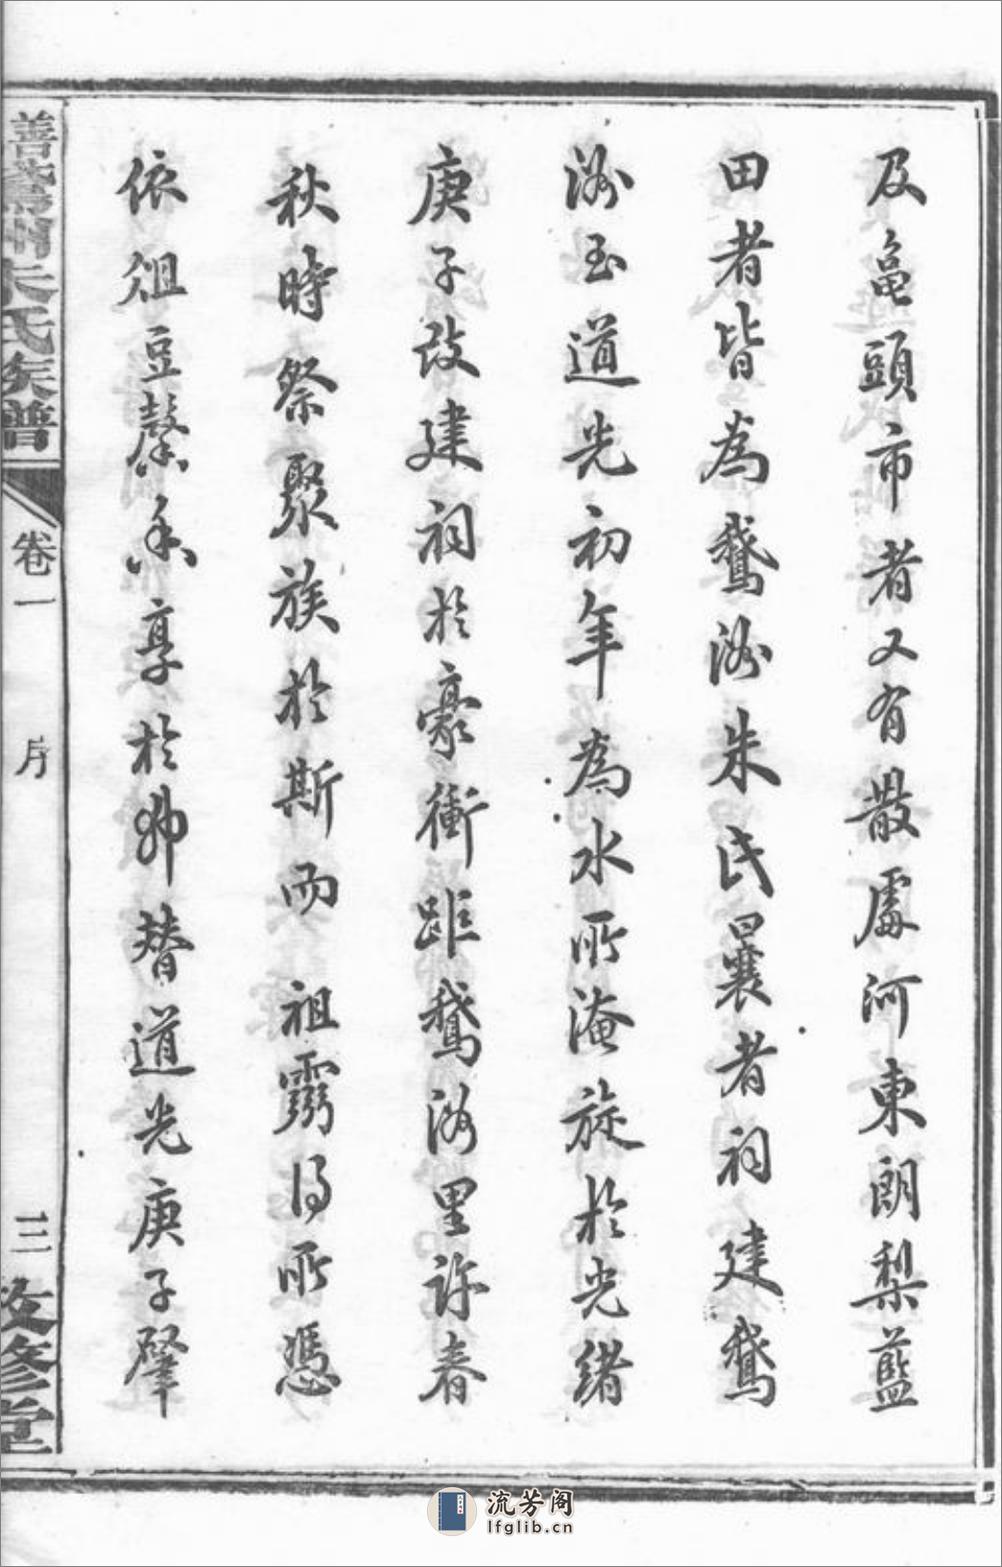 及黾頭市者又有散處河東朗梨藍
田者皆為鵞洲朱氏曩者祠建鵞
洲至道光初年為水所淹旋於光緒
庚子改建祠於豪衝距鵞洲里許春
秋時祭聚族於斯而祖靈得所憑
依俎豆馨香享於弗替道光庚子肇
善鵞洲朱氏族譜
卷一
序
三
敦修堂
流芳阁
lfglib.cn